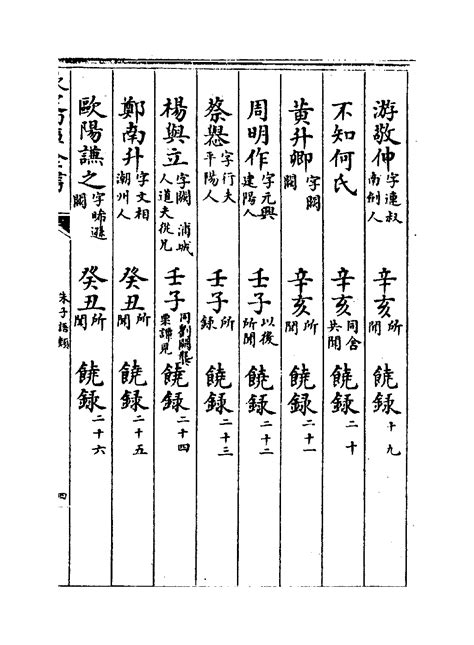 游敬仲字連叔南劍人 辛亥所聞 饒録十九
不知何氏 辛亥同舍共聞 饒録二十
黄升卿字闕闕 辛亥所聞 饒録二十一
周明作字元興建陽人 壬子以後所聞 饒録二十二
蔡㦛字行夫平陽人 壬子所録 饒録二十三
楊與立字闕浦城人道夫從兄 壬子同劉黻龔栗譚見 饒録二十四
鄭南升字文相潮州人 癸丑所聞 饒録二十五
歐陽謙之字晞遜闕 癸丑所聞 饒録二十六
朱子語類
四